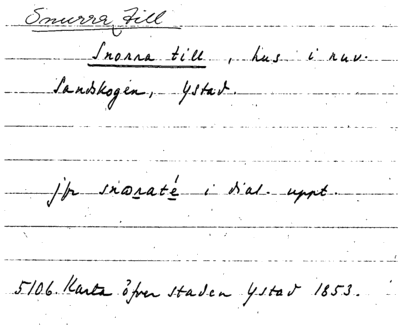 Snurra till
Snorra till, hus i nuv.
Sandskogen, Ystad.
jfr snoraté i dial. uppt.
5106. Karta öfver staden Ystad 1853.